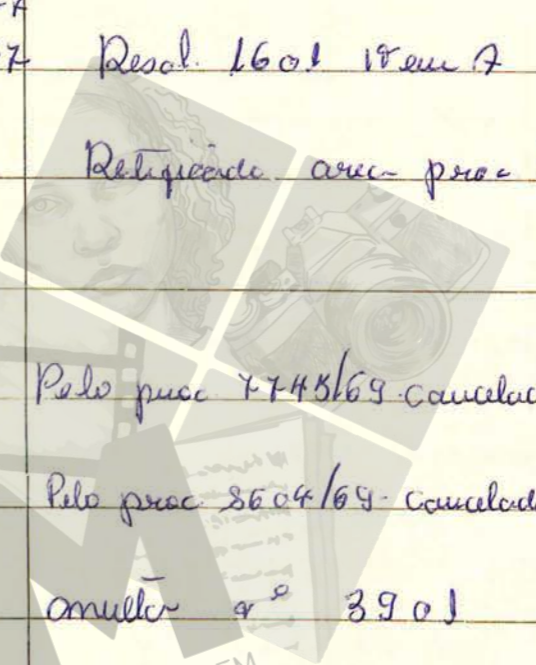 7 Resol. 1601 1º em 7
Retificado area proc
Pelo proc 7745/69 cancelad
Pelo proc. 8604/69 - cancelad
multa nº 3901
EM